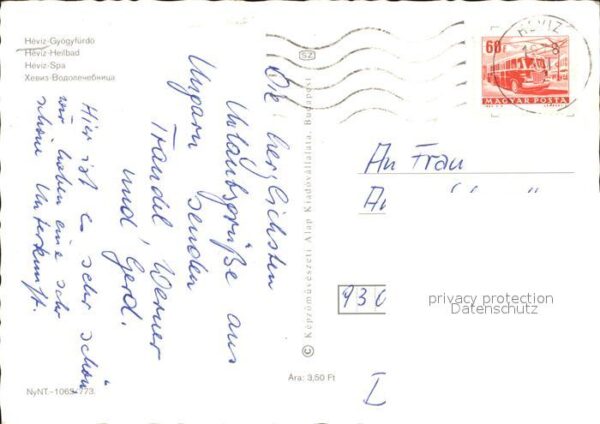 Hévíz-Gyógyfürdő
Hévíz-Heilbad
Hévíz-Spa
Хевиз-Водолечебница
Die herzlichsten
Urlaubsgrüße aus
Ungarn senden
Traudel Werner
und Gerd.
Hier ist es sehr schön
wir haben eine sehr
schöne Unterkunft.
NyNT.-1063-773
SZ
© Képzőművészeti Alap Kiadóvállalata, Budapest
Ára: 3,50 Ft
HÉVIZ
60f
MAGYAR POSTA
An Frau
930
I
privacy protection
Datenschutz